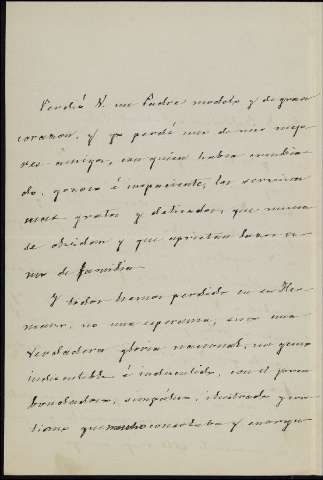 Perdió V. un Padre modelo y de gran
corazon, y yo perdí uno de mis mejo-
res amigos, con quien habia cambia-
do, gozoso é impaciente, los servicios
mas gratos y delicados, que nunca
se olvidan y que aprietan lazos co-
mo de familia.
Y todos hemos perdido en su Her-
mano, no una esperanza, sino una
verdadera gloria nacional, un genio
indiscutible é indiscutido, con el que
bondadoso, simpático, ilustrado y cris-
tiano que mucho